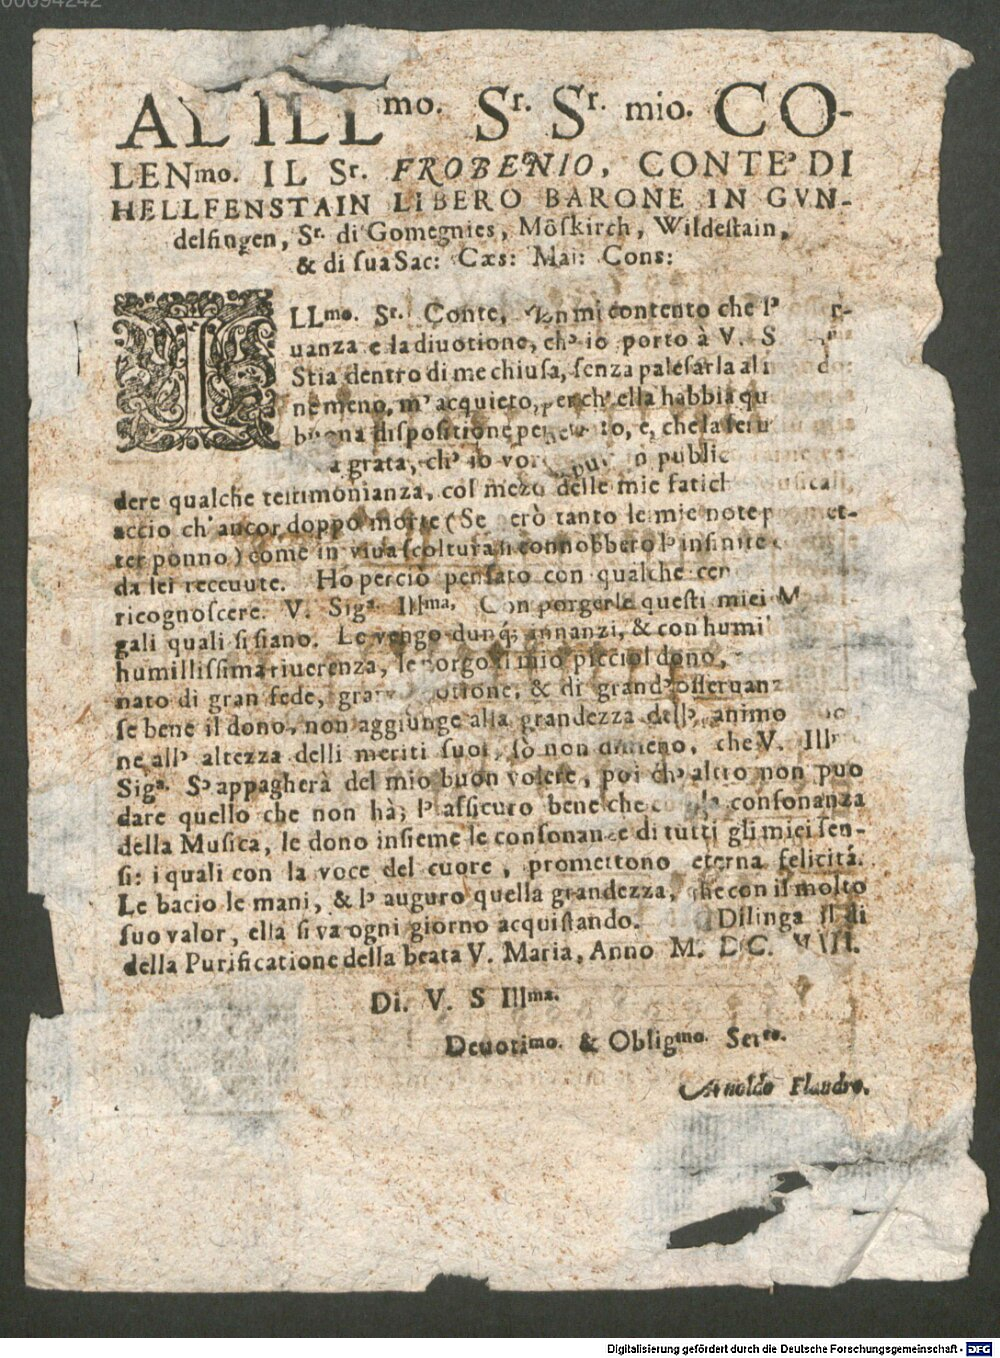 00094242
AL ILLmo. Sr. Sr. mio. CO-
LENmo. IL Sr. FROBENIO, CONTE DI
HELLFENSTAIN LIBERO BARONE IN GVN-
delfingen, Sr. di Gomegnies, Möſkirch, Wildeſtain,
& di ſua Sac: Cæs: Mai: Cons:
ILLmo. Sr. Conte, Non mi contento che l'
uanza e la diuotione, ch' io porto à V. S
Stia dentro di me chiuſa, ſenza paleſarla al do:
ne meno, m' acquieto, perch' ella habbia qu
buona diſpoſitione per to, e, che la ſeru
a grata, ch' io publi
dere qualche teſtimonianza, col mezo delle mie fatich Muſicali,
accio ch' ancor doppo morte (Se però tanto le mie note p met-
ter ponno) come in viua ſcoltura ſi connobbero l' infinite
da lei receuute. Ho perciò penſato con qualche
ricognoſcere. V. Siga. Illma. Con porgerle queſti miei M
gali quali ſi ſiano. Le vengo dunq; innanzi, & con humi
humilliſſima riuerenza, le porgo il mio picciol dono,
nato di gran fede, gran otione, & di grand' oſſeruanz
ſe bene il dono, non aggiunge alla grandezza dell' animo
ne all' altezza delli meriti ſuoi, ſò non dimeno, che V. Illma
Siga. S' appagherà del mio buon volere, poi ch' altro non può
dare quello che non hà; l' aſſicuro bene che conſonanza
della Muſica, le dono inſieme le conſonanze di tutti gli miei ſen-
ſi: i quali con la voce del cuore, promettono eterna felicità.
Le bacio le mani, & l' auguro quella grandezza, che con il molto
ſuo valor, ella ſi va ogni giorno acquiſtando. Dilinga il di
della Purificatione della beata V. Maria, Anno M. DC. VIII.
Di. V. S Illma.
Deuotimo. & Obligmo. Serro.
Arnoldo Flandro.
Digitalisierung gefördert durch die Deutsche Forschungsgemeinschaft - DFG